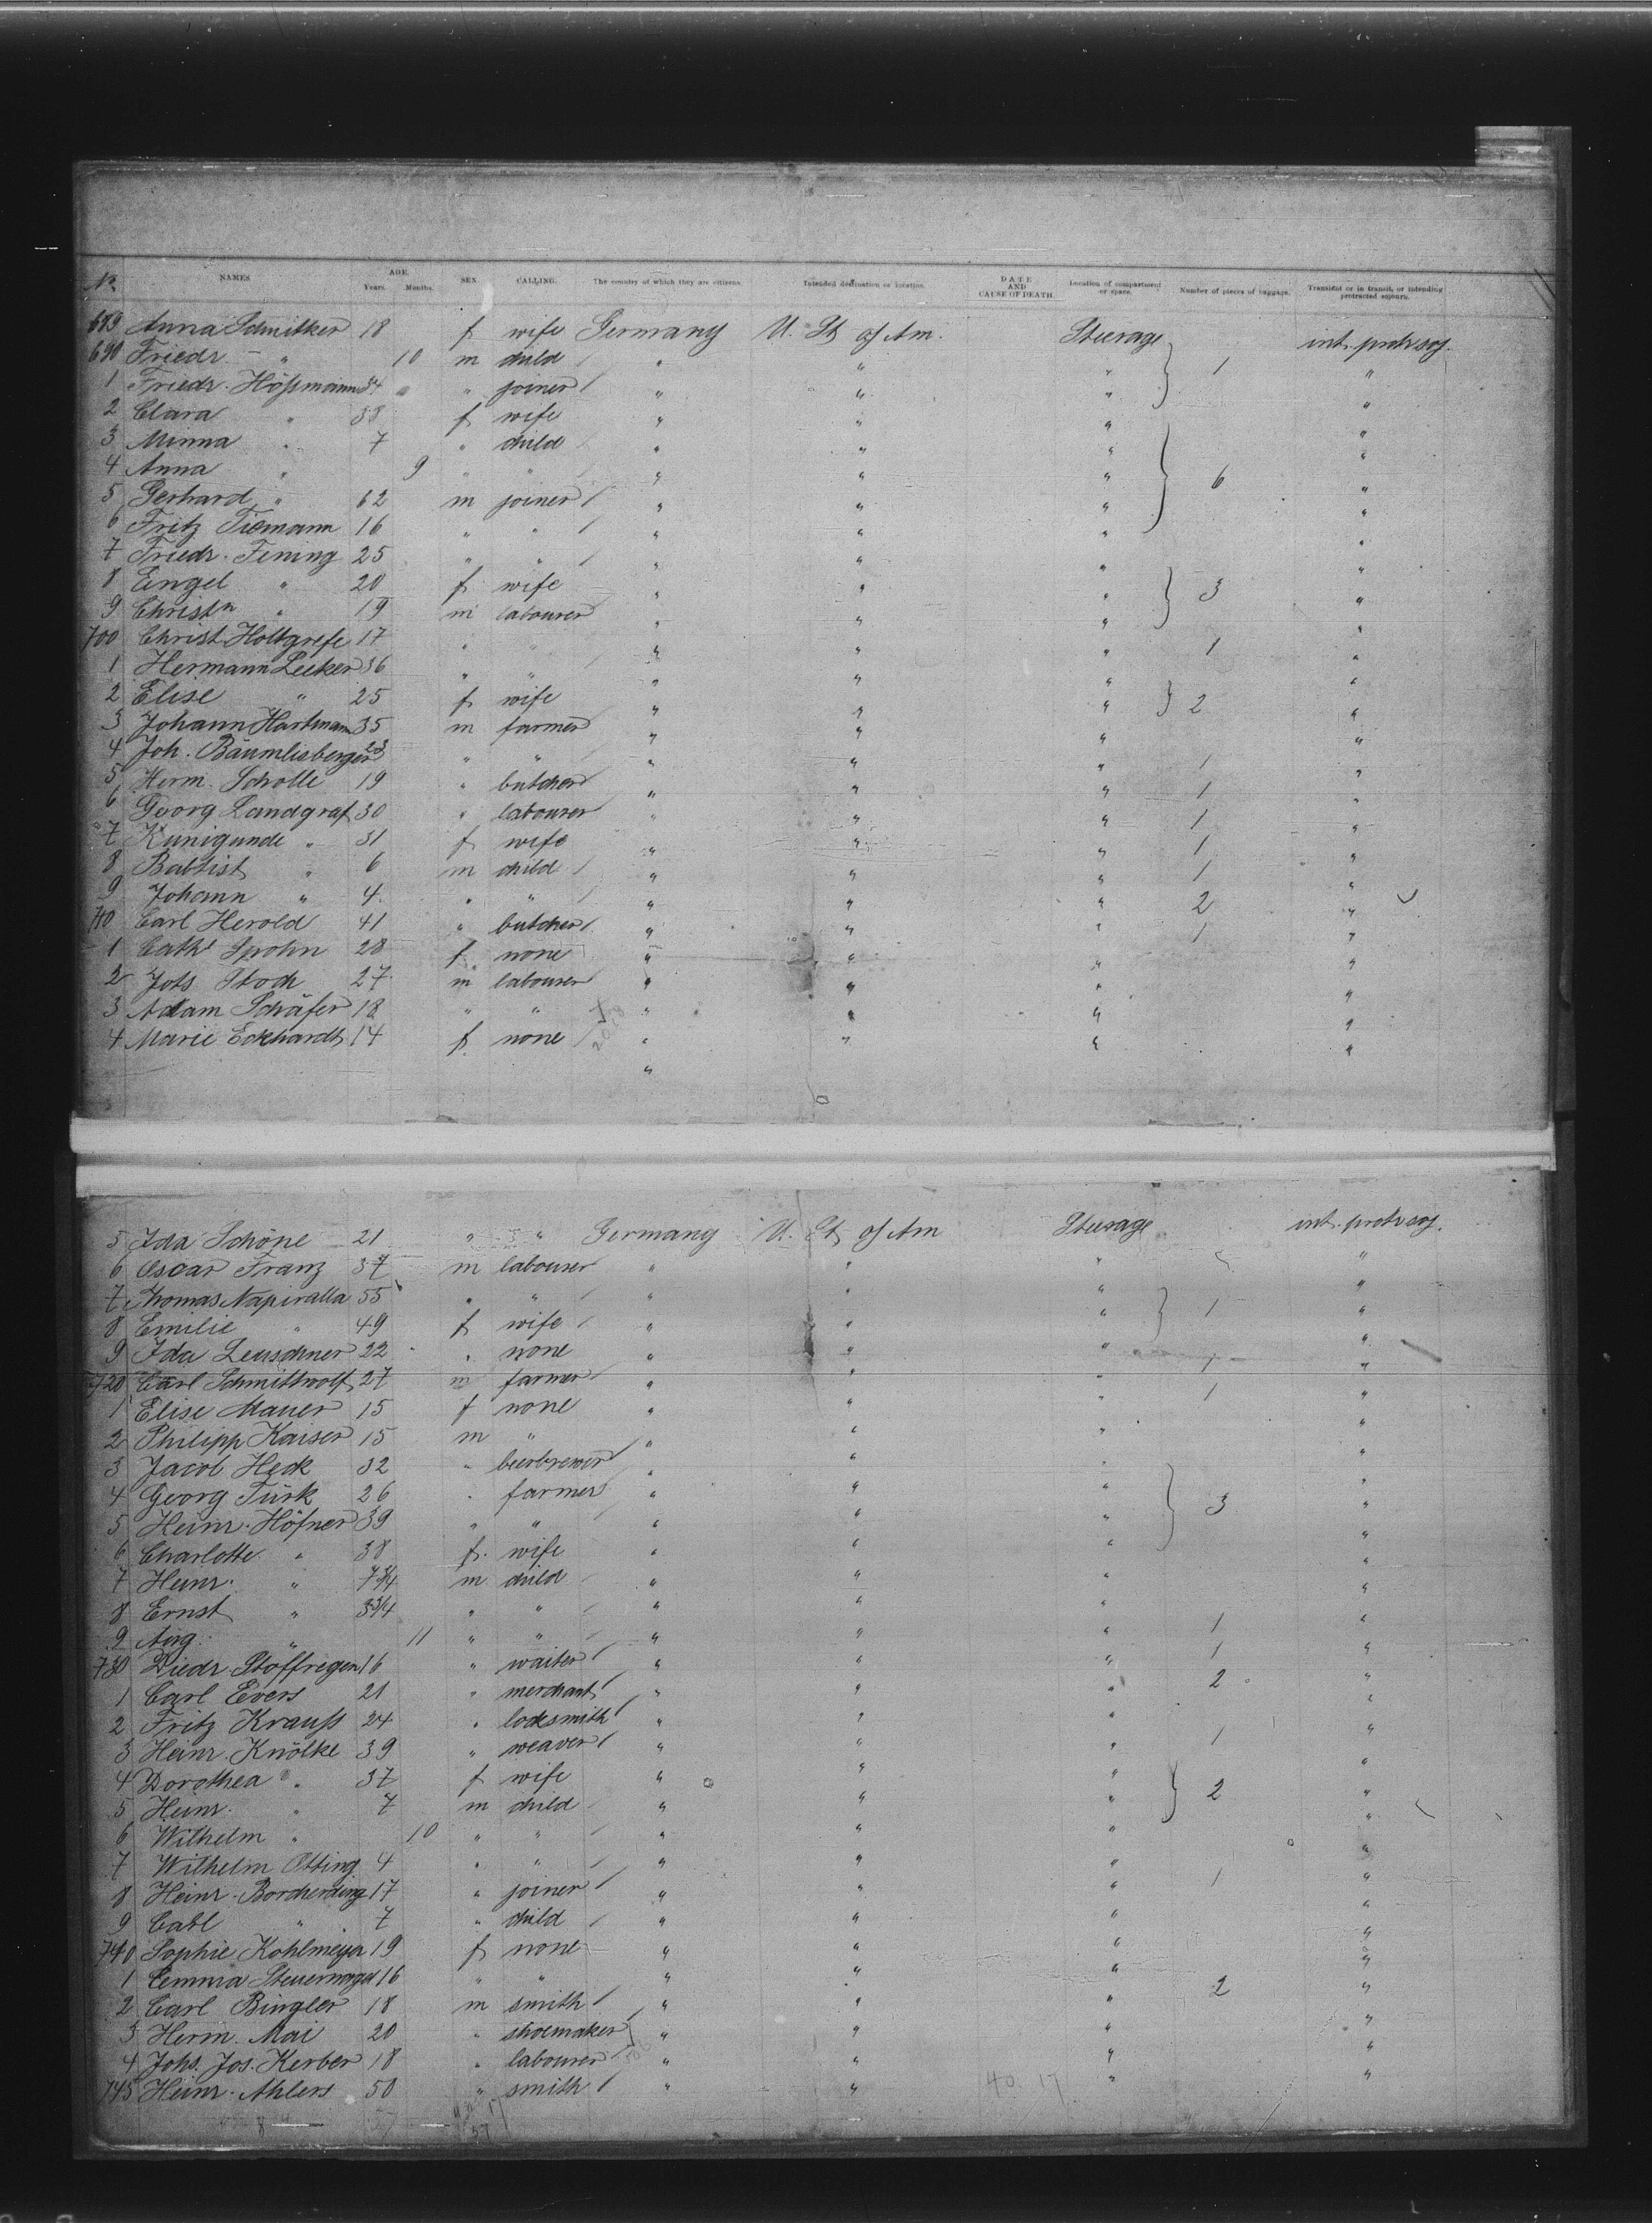 No. NAMES AGE. Years. Months. SEX. CALLING. The country of which they are citizens. Intended destination or location. DATE AND CAUSE OF DEATH. Location of compartment or space. Number of pieces of baggage. Transient or in transit, or intending protracted sojourn.
689 Anna Schmitker 18 f wife Germany U. St of Am. Steerage int. protr soj.
690 Friedr — " 10 m child " " " 1 "
1 Friedr. Hößmann 34 " joiner " " " "
2 Clara " 38 f wife " " " "
3 Minna " 7 " child " " " "
4 Anna " 9 " " " " " 6 "
5 Gerhard " 62 m joiner " " " "
6 Fritz Tiemann 16 " " " " " "
7 Friedr. Fening 25 " " " " " "
8 Engel " 20 f wife " " " 3 "
9 Christn " 19 m labourer " " " "
700 Christ. Holtgrefe 17 " " " " " 1 "
1 Hermann Lecker 36 " " " " " "
2 Elise " 25 f wife " " " 2 "
3 Johann Hartmann 35 m farmer " " " "
4 Joh. Bäumlisberger 23 " " " " " 1 "
5 Herm. Scholle 19 " butcher " " " 1 "
6 Georg Landgraf 30 " labourer " " " 1 "
7 Kunigunde " 31 f wife " " " 1 "
8 Babtist " 6 m child " " " 1 "
9 Johann " 4 " " " " " 2 "
710 Carl Herold 41 " butcher " " " 1 "
1 Cath. Spohn 28 f none " " " "
2 Johs Stoch 27 m labourer " " " "
3 Adam Schäfer 18 " " " " " "
4 Marie Eckhardt 14 f none " " " "
5 Ida Schöne 21 " " Germany U. St of Am Steerage int. protr soj.
6 Oscar Franz 37 m labourer " " " "
7 Thomas Napiralla 55 " " " " " 1 "
8 Emilie " 49 f wife " " " "
9 Ida Leuschner 22 " none " " " 1 "
720 Carl Schmittwolf 27 m farmer " " " 1 "
1 Elise Mauer 15 f none " " " "
2 Philipp Kaiser 15 m " " " " "
3 Jacob Heck 32 " beerbrewer " " " "
4 Georg Türk 26 " farmer " " " 3 "
5 Heinr. Höfner 39 " " " " " "
6 Charlotte " 38 f. wife " " " "
7 Heinr. " 7 3/4 m child " " " "
8 Ernst " 3 3/4 " " " " " "
9 Aug. " 11 " " " " " 1 "
730 Diedr. Stoffregen 16 " waiter " " " 1 "
1 Carl Evers 21 " merchant " " " 2 "
2 Fritz Krauß 24 " locksmith " " " "
3 Heinr. Knölke 39 " weaver " " " 1 "
4 Dorothea " 37 f wife " " " "
5 Heinr. " 7 m child " " " 2 "
6 Wilhelm " 10 " " " " " "
7 Wilhelm Otting 4 " " " " " "
8 Heinr. Borcherding 17 " joiner " " " 1 "
9 Carl " 7 " child " " " "
740 Sophie Kohlmeyer 19 f none " " " "
1 Emma Steuernagel 16 " " " " " 2 "
2 Carl Bingler 18 m smith " " " "
3 Herm. Mai 20 " shoemaker " " " "
4 Johs. Jos. Kerber 18 " labourer " " " "
745 Heinr. Ahlers 50 " smith " " 40. 17 " "
57 17
57